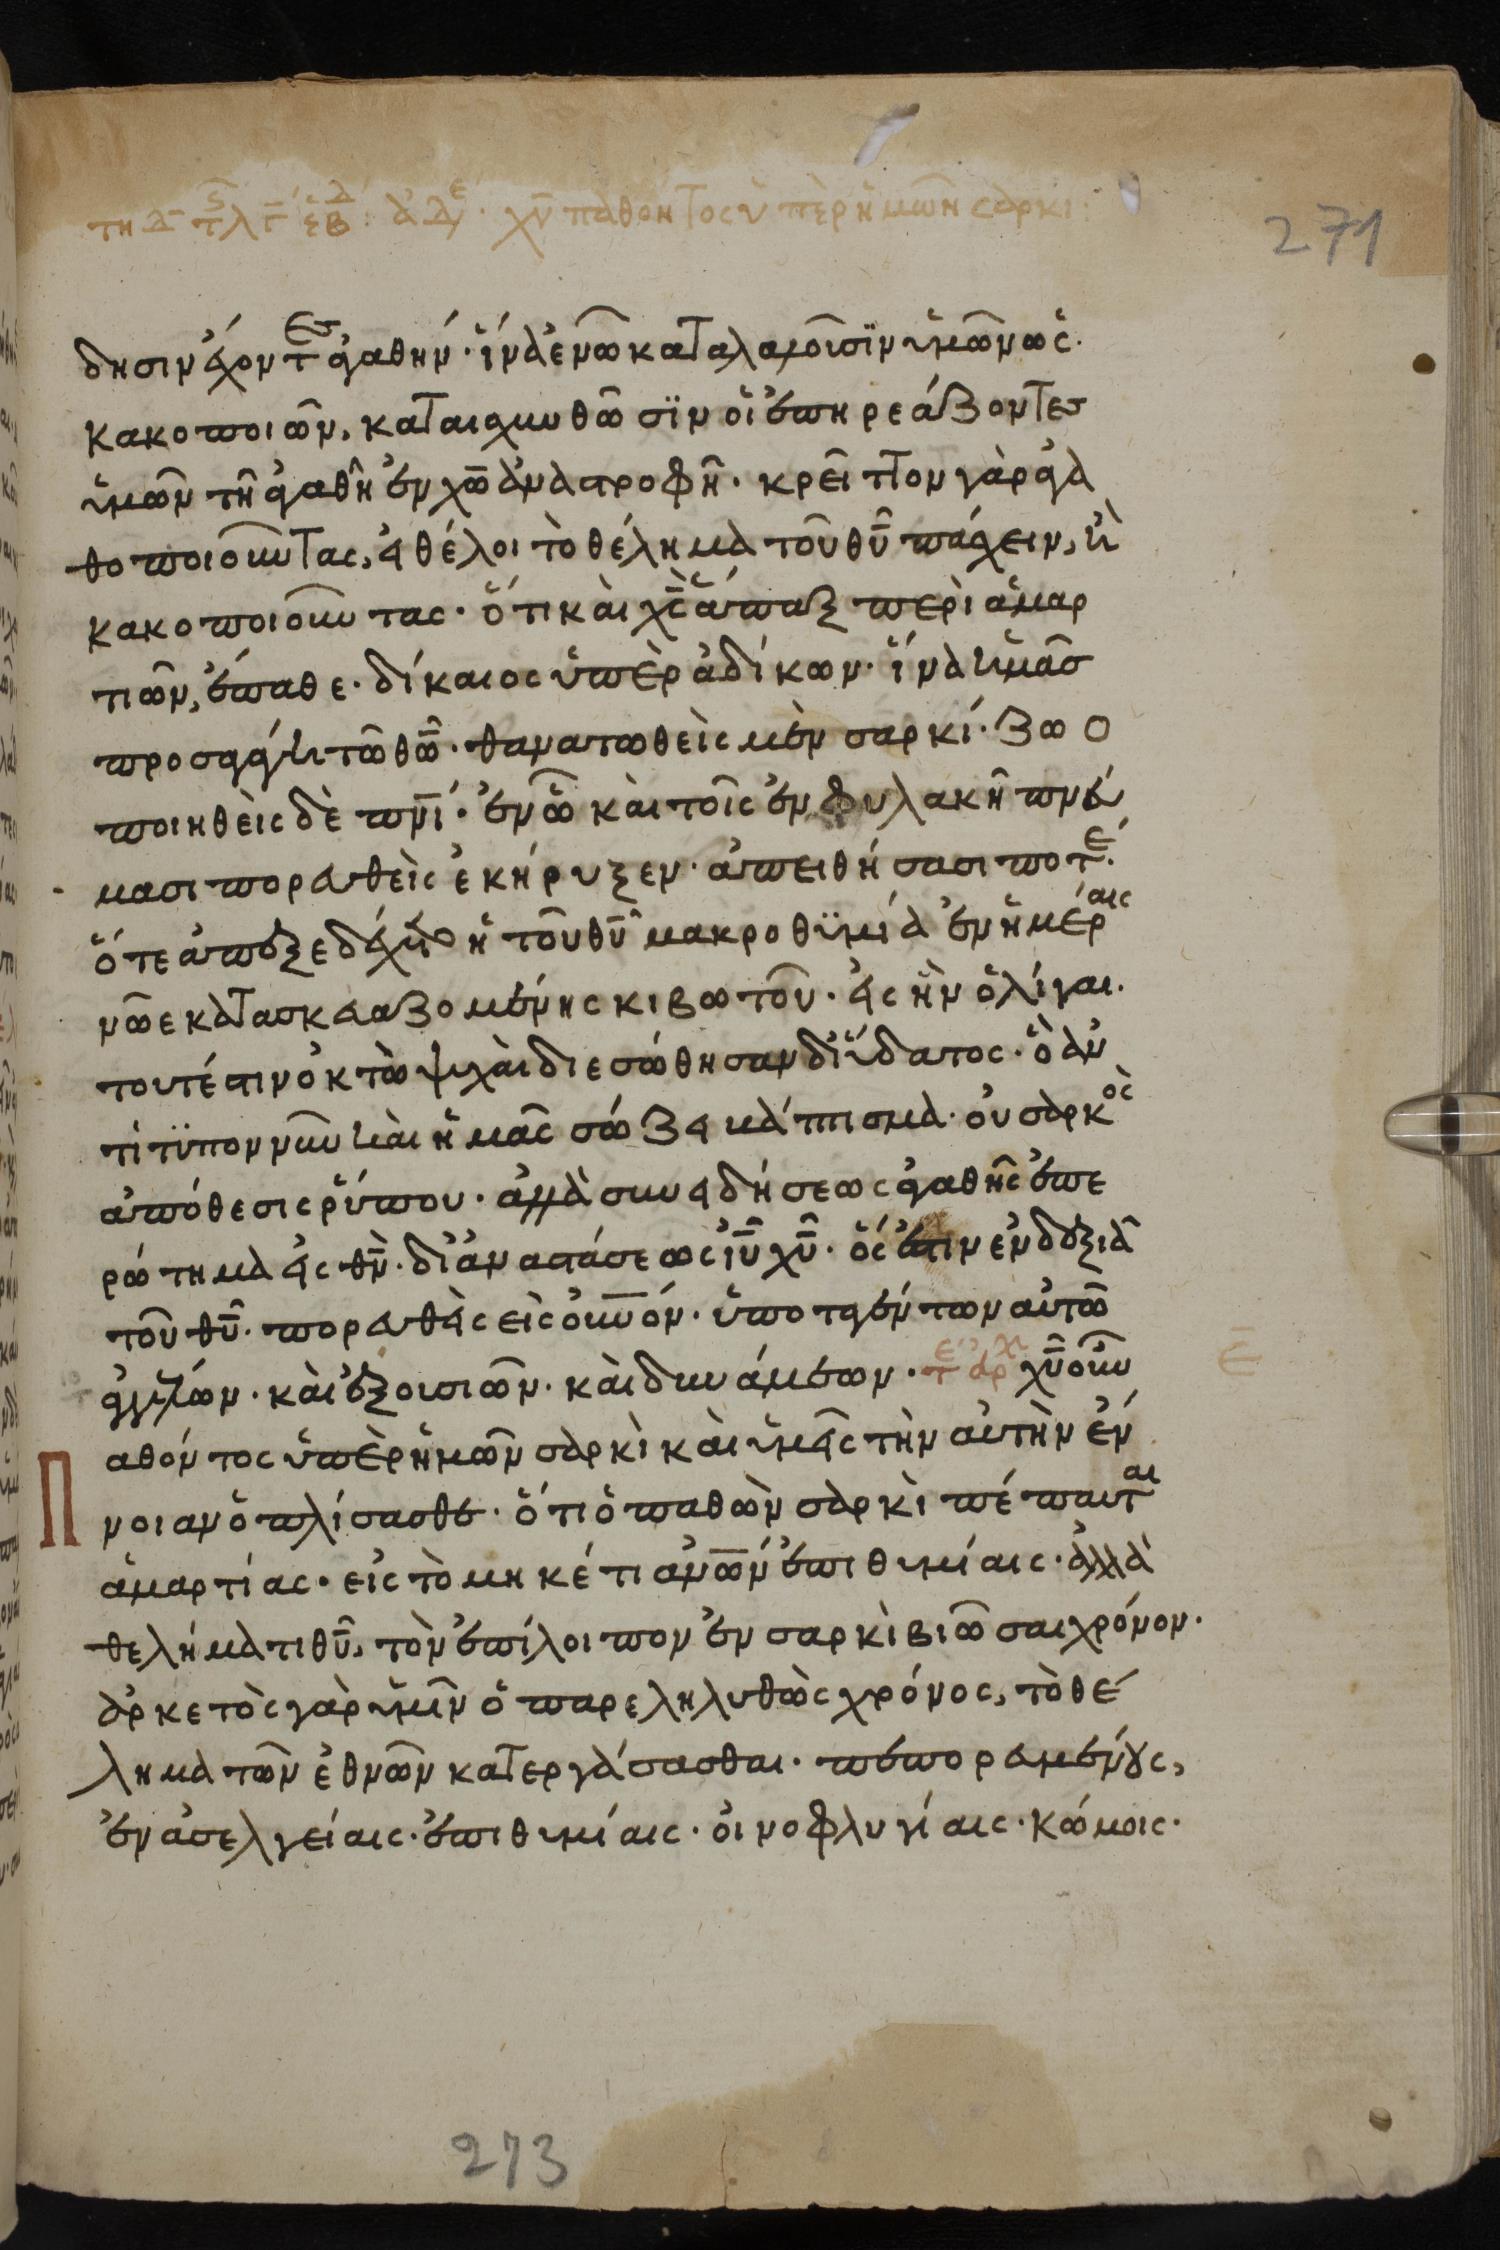 τη δ̅ τ̅ λγ̅ ἑβδ: ἀδε· χῦ παθόντος ὑπὲρ ἡμῶν σαρκί:
271
δησιν ἔχοντες ἀγαθήν· ἵνα ἐν ὧ καταλαλοῦσϊν ὑμῶν ὡς
κακοποιῶν, καταισχυνθῶσϊν οἱ ἐπηρεάζοντες
ὑμῶν τὴ ἀγαθῆ ἐν χω̅ ἀναστροφῆ· κρεῖττον γὰρ ἀγα
θοποιοῦντας, εἰ θέλοι τὸ θέλημα τοῦ θυ̅ πάσχειν, ἢ
κακοποιοῦντας· ὅτι καὶ χς̅ ἅπαξ περὶ ἁμαρ
τιῶν, ἔπαθε· δίκαιος ὑπὲρ ἀδίκων· ἵνα ἡμᾶς
προσαγάγη τῶ θω̅· θανατωθεὶς μὲν σαρκί· ζωο
ποιηθεὶς δὲ πνι̅· ἐν ὧ καὶ τοῖς ἐν φυλακῆ πνεύ
μασι πορευθεὶς ἐκήρυξεν· ἀπειθήσασι ποτέ·
ὅτε ἀπεξεδέχετο ἡ τοῦ θυ̅ μακροθϋμία ἐν ἡμέραις
νῶε κατασκευαζομένης κιβωτοῦ· εἰς ἣν ὀλίγαι·
τουτέστιν ὀκτὼ ψυχαὶ διεσώθησαν δι' ὕδατος· ὃ ἀν
τίτϋπον νῦν καὶ ἡμᾶς σώζει βάπτισμα· οὐ σαρκὸς
ἀπόθεσις ῥύπου· ἀλλὰ συνειδήσεως ἀγαθῆς ἐπε
ρώτημα εἰς θν̅· δι' ἀναστάσεως ιυ̅ χυ̅· ὅς ἐστιν ἐν δεξιᾶ
τοῦ θυ̅· πορευθεὶς εἰς οὐνον̅· ὑποταγέντων αὐτῶ
ἀγγέλων· καὶ ἐξουσιῶν· καὶ δυνάμεων· τέ ἀρχ χυ̅ οὖν
ε̅
Παθόντος ὑπὲρ ἡμῶν σαρκὶ καὶ ὑμεῖς τὴν αὐτὴν ἔν
νοιαν ὁπλίσασθε· ὅτι ὁ παθὼν σαρκὶ πέπαυται
ἁμαρτίας· εἰς τὸ μηκέτι ἀνων̅ ἐπιθυμίαις· ἀλλὰ
θελήματι θυ̅, τὸν ἐπίλοιπον ἐν σαρκὶ βιῶσαι χρόνον·
ἀρκετὸς γὰρ ὑμῖν ὁ παρεληλυθὼς χρόνος, τὸ θέ
λημα τῶν ἐθνῶν κατεργάσασθαι· πεπορευμένους,
ἐν ἀσελγείαις· ἐπιθυμίαις· οἰνοφλυγίαις· κώμοις·
273